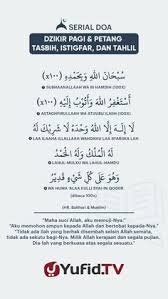 SERIAL DOA
DZIKIR PAGI & PETANG
TASBIH, ISTIGFAR, DAN TAHLIL
سُبْحَانَ اللَّهِ وَبِحَمْدِهِ (١٠٠x)
SUBHAANALLAH WA BI HAMDIH (100X)
أَسْتَغْفِرُ اللَّهَ وَأَتُوبُ إِلَيْهِ (١٠٠x)
ASTAGHFIRULLAH WA ATUUBU ILAIH (100X)
لَا إِلَهَ إِلَّا اللَّهُ وَحْدَهُ لَا شَرِيكَ لَهُ
LAA ILAAHA ILLALLAH WAHDAHU LAA SYARIKA LAH
لَهُ الْمُلْكُ وَلَهُ الْحَمْدُ
LAHUL-MULKU WA LAHUL-HAMDU
وَهُوَ عَلَى كُلِّ شَيْءٍ قَدِيرٌ
WA HUWA 'ALAA KULLI SYAI-IN QODIIR
(dibaca 100x)
(HR. Bukhari & Muslim)
"Maha suci Allah, aku memuji-Nya."
"Aku memohon ampun kepada Allah dan bertobat kepada-Nya."
"Tidak ada ilah yang berhak disembah selain Allah semata,
tidak ada sekutu bagi-Nya. Milik Allah kerajaan dan segala pujian.
Dia-lah yang berkuasa atas segala sesuatu."
YUFID.TV